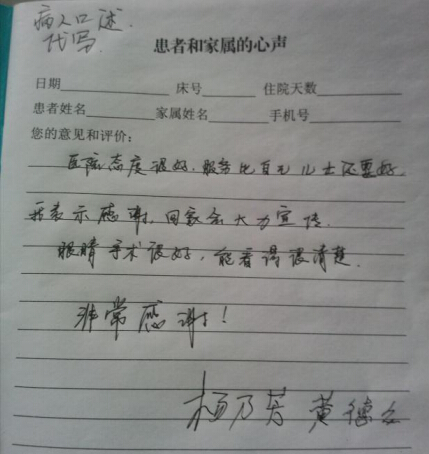 病人口述.
代写.
患者和家属的心声
日期 床号 住院天数
患者姓名 家属姓名 手机号
您的意见和评价:
医院态度很好.服务比自己儿女还要好.
我表示感谢,回家会大力宣传.
眼睛手术很好,能看得很清楚.
非常感谢!
杨乃芳 黄德